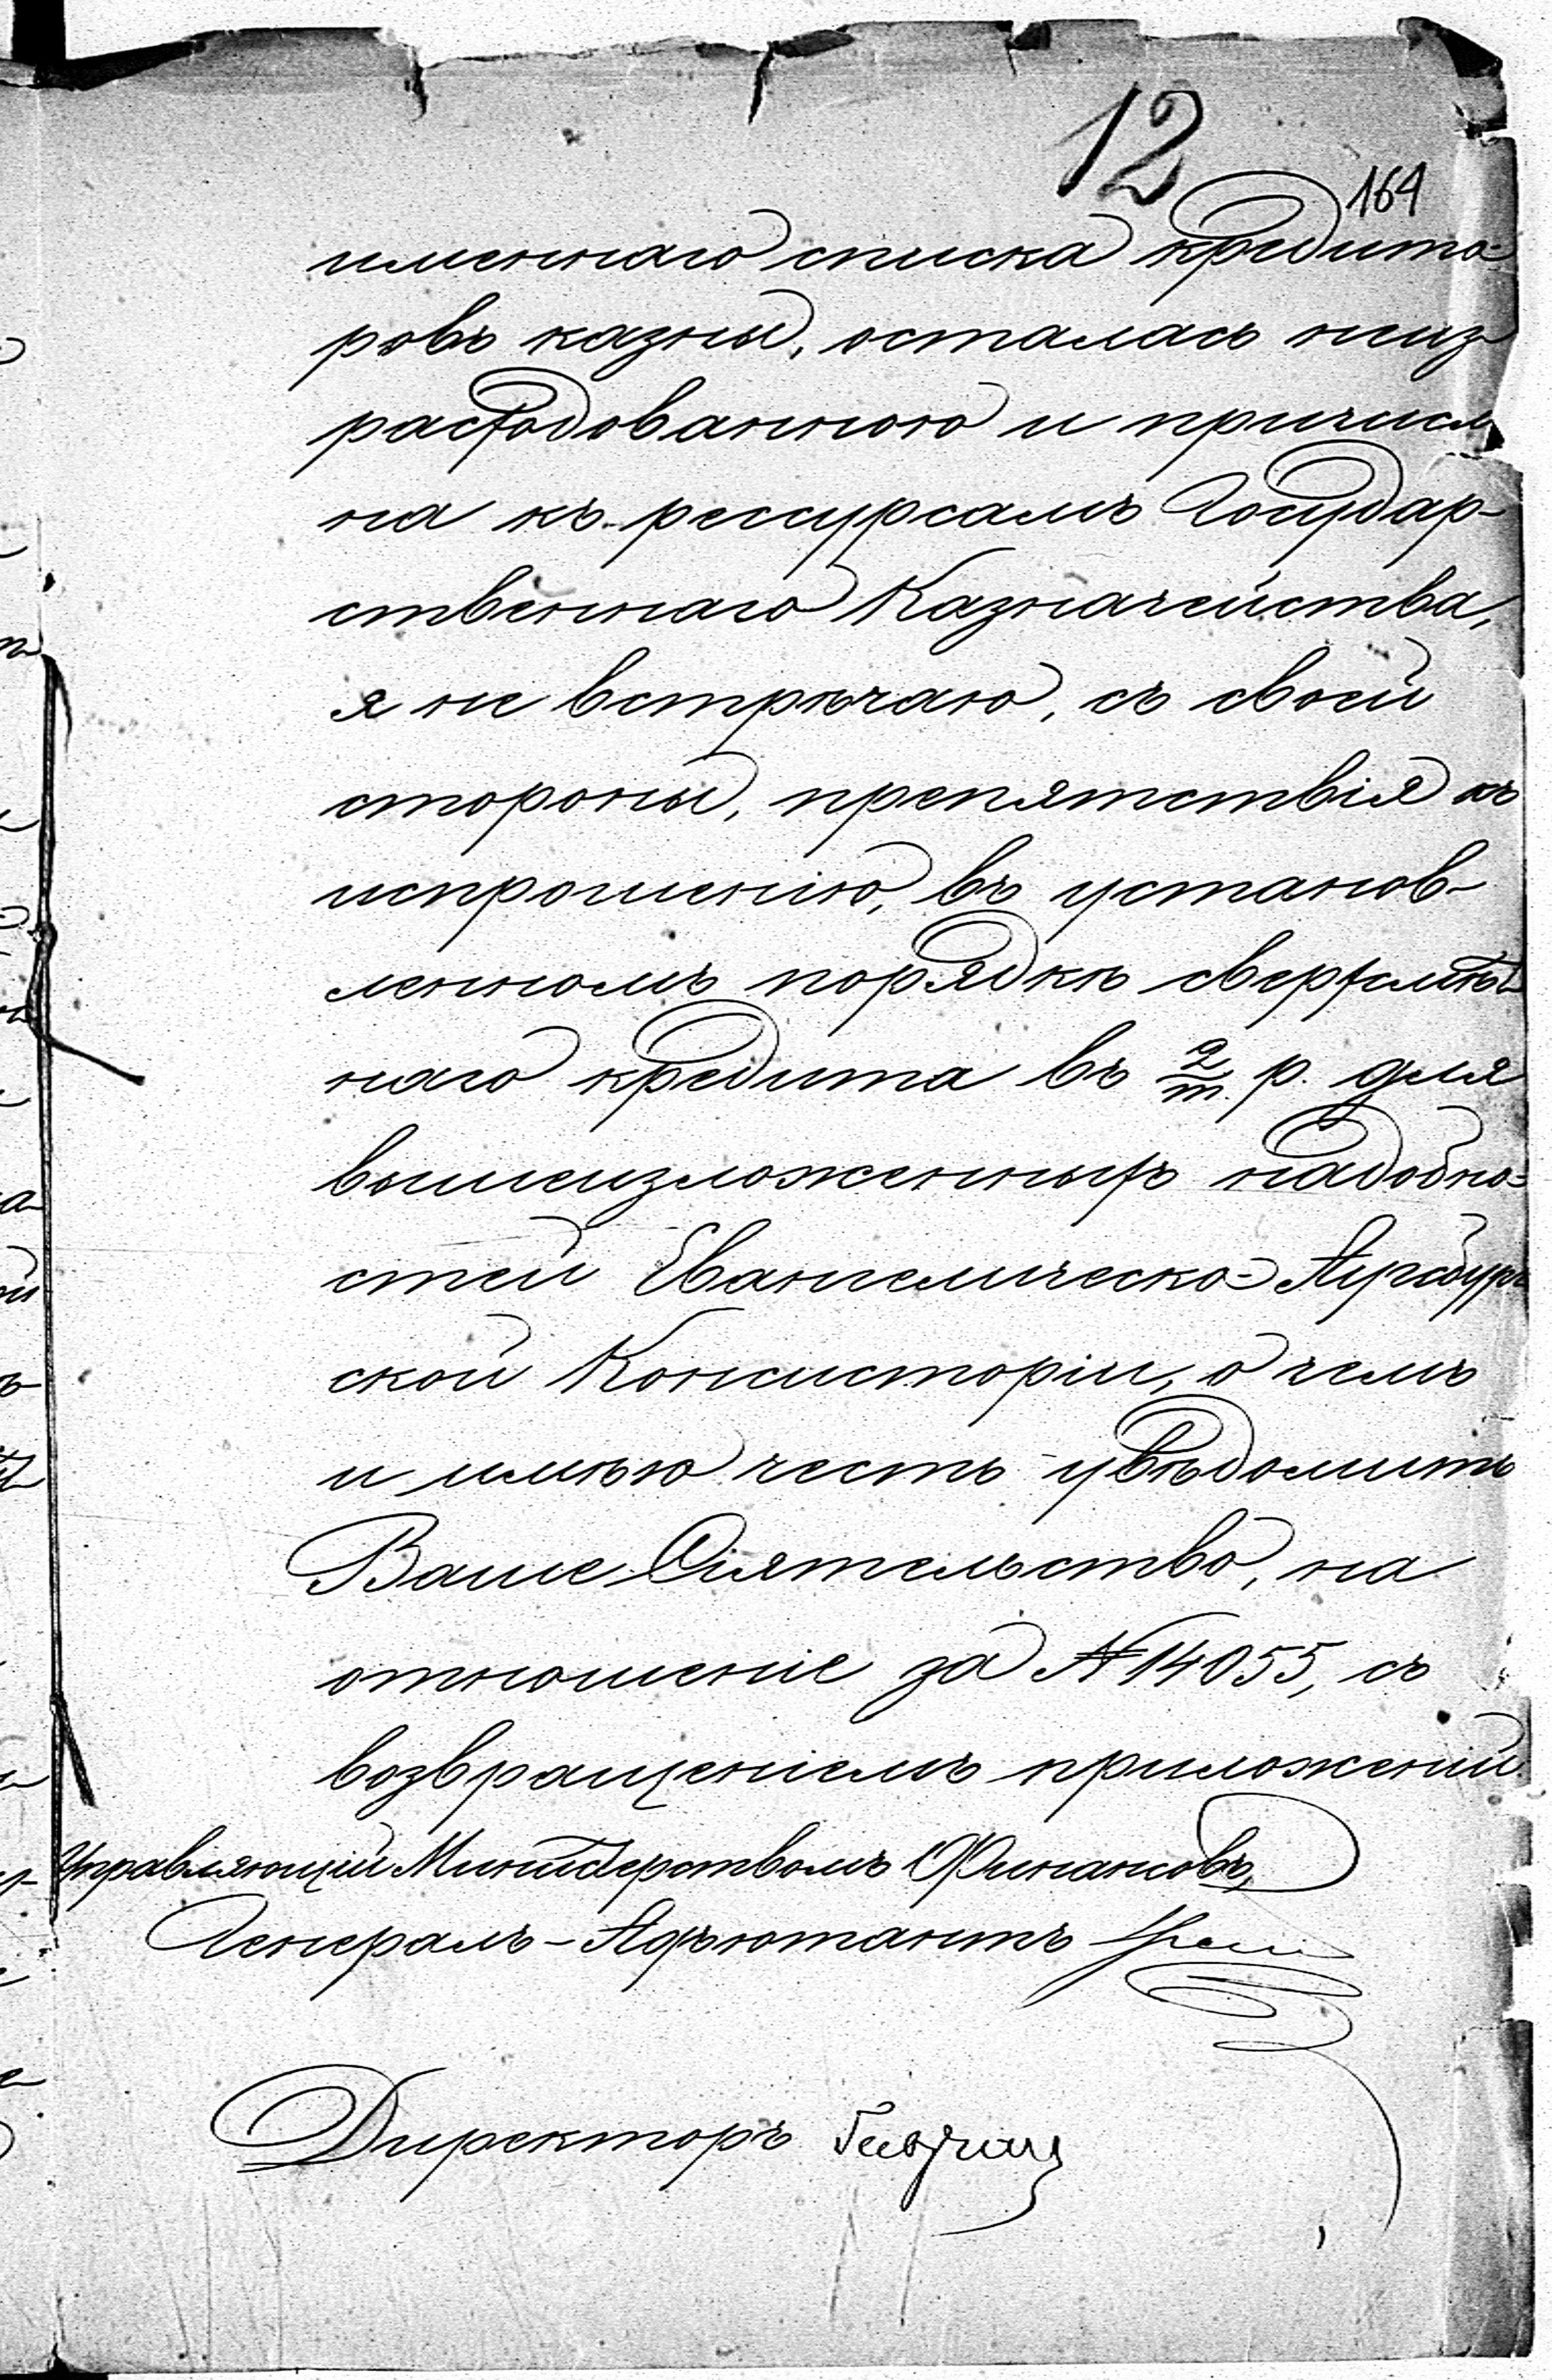 12
164
именнаго списка кредито=
ровъ казны, осталась неиз
расходованною и причисле
на къ рессурсамъ Государ-
ственнаго Казначейства,
я не встрѣчаю, съ своей
стороны, препятствія къ
испрошенію, въ установ-
ленномъ порядкѣ сверхсмѣт
наго кредита въ 2/т. р. для
вышеизложенныхъ надобно=
стей Евангелическо-Аугсбург
ской Консисторіи, о чемъ
и имѣю честь увѣдомить
Ваше Сіятельство, на
отношеніе за № 14055, съ
возвращеніемъ приложеній
Управляющій Министерствомъ Финансовъ,
Генералъ-Адъютантъ
Директоръ